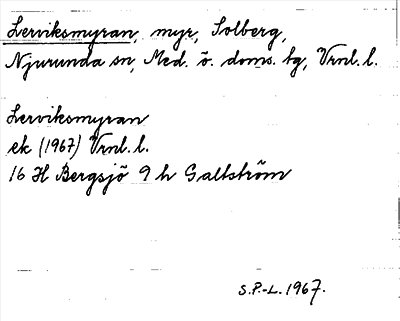 Lerviksmyran, myr, Solberg,
Njurunda sn, Med. ö. doms. tg, Vrnl. l.
Lerviksmyran
ek (1967) Vrnl. l.
16 H Bergsjö 9 h Galtström
S.P.-L. 1967.